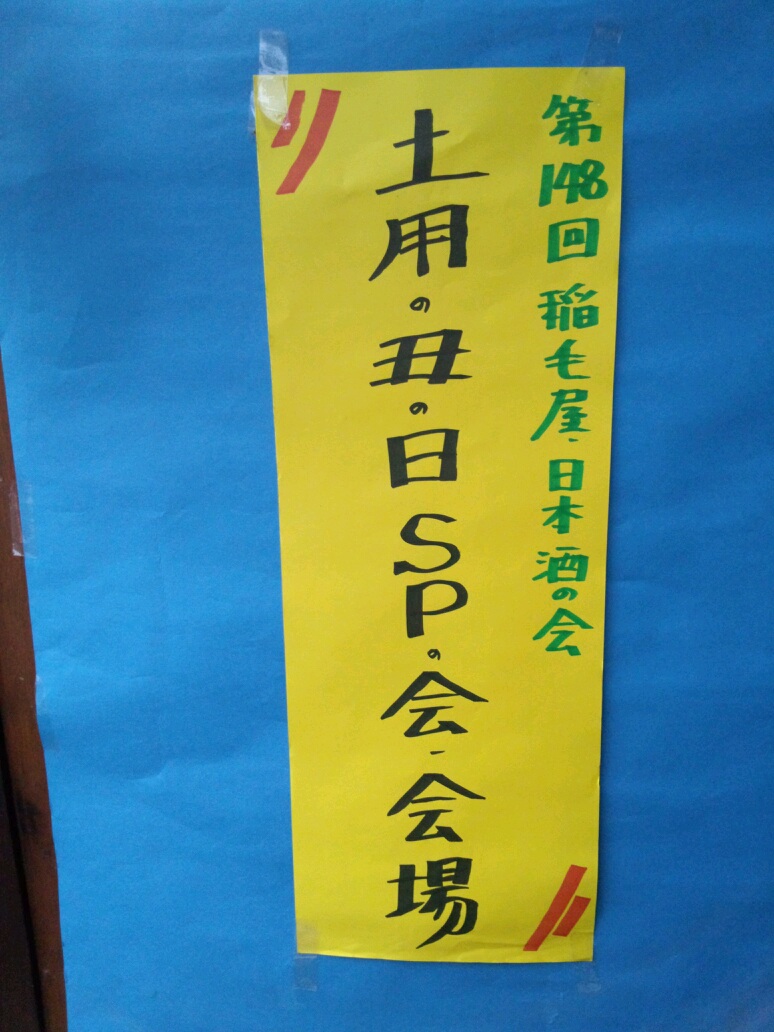 第148回稲毛屋・日本酒の会
土用の丑の日SPの会・会場